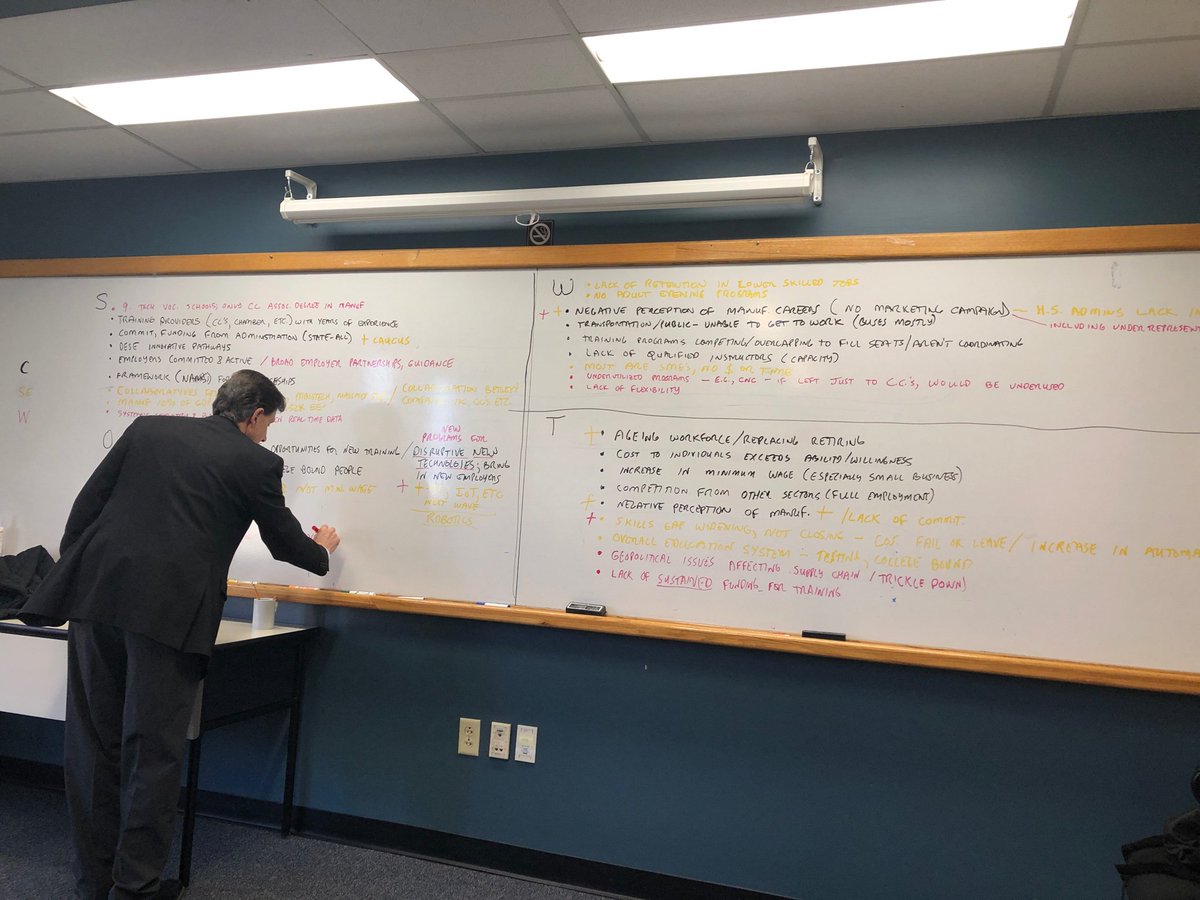 S
• 9 TECH. VOC. SCHOOLS; ONLY CC ASSOC. DEGREE IN MANUF
• TRAINING PROVIDERS (CC'S, CHAMBER, ETC) WITH YEARS OF EXPERIENCE
• COMMIT, FUNDING FROM ADMINISTRATION (STATE-ALL) + CAUCUS
• DESE INNOVATIVE PATHWAYS
• EMPLOYERS COMMITTED & ACTIVE / BROAD EMPLOYER PARTNERSHIPS, GUIDANCE
• FRAMEWORK
C
SE
W
• COLLABORATIVES
• MANUF 10% OF
REAL TIME DATA
O
OPPORTUNITIES FOR NEW TRAINING /
BOUND PEOPLE
NOT MIN WAGE
NEW
PROGRAMS FOR
DISRUPTIVE NEW
TECHNOLOGIES; BRING
IN NEW EMPLOYERS
+ + IOT, ETC
NEXT WAVE
ROBOTICS
W
• LACK OF RETENTION IN LOWER SKILLED JOBS
• NO ADULT EVENING PROGRAMS
+ + • NEGATIVE PERCEPTION OF MANUF. CAREERS (NO MARKETING CAMPAIGN) — H.S. ADMINS LACK
INCLUDING
• TRANSPORTATION/PUBLIC - UNABLE TO GET TO WORK (BUSES MOSTLY)
• TRAINING PROGRAMS COMPETING/OVERLAPPING TO FILL SEATS/AREN'T COORDINATING
• LACK OF QUALIFIED INSTRUCTORS (CAPACITY)
• MOST ARE SME'S, NO $ OR TIME
• UNDERUTILIZED PROGRAMS - E.G., CNC - IF LEFT JUST TO C.C.'S, WOULD BE UNDERUSED
• LACK OF FLEXIBILITY
T
+ • AGEING WORKFORCE/REPLACING RETIRING
• COST TO INDIVIDUALS EXCEEDS ABILITY/WILLINGNESS
• INCREASE IN MINIMUM WAGE (ESPECIALLY SMALL BUSINESS)
• COMPETITION FROM OTHER SECTORS (FULL EMPLOYMENT)
+ • NEGATIVE PERCEPTION OF MANUF. + /LACK OF COMMIT.
+ • SKILLS GAP WIDENING, NOT CLOSING - COS. FAIL OR LEAVE/ INCREASE IN
• OVERALL EDUCATION SYSTEM - TESTING, COLLEGE BOUND
• GEOPOLITICAL ISSUES AFFECTING SUPPLY CHAIN /TRICKLE DOWN)
• LACK OF SUSTAINED FUNDING FOR TRAINING